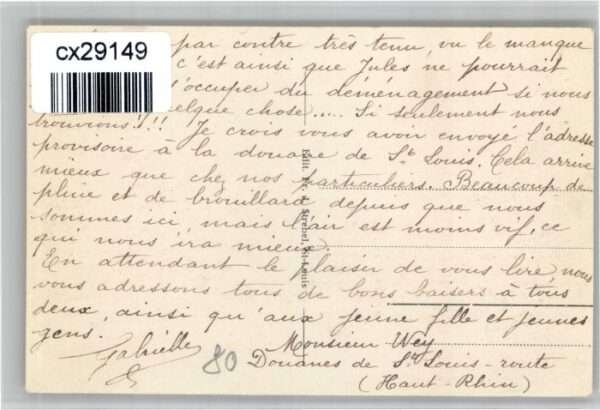 cx29149
par contre très tenu, vu le manque
c'est ainsi que Jules ne pourrait
s'occuper du déménagement si nous
quelque chose..... Si seulement nous
trouvions!!! Je crois vous avoir envoyé l'adresse
provisoire à la douane de St Louis. Cela arrive
mieux que chez nos particuliers. Beaucoup de
pluie et de brouillard depuis que nous
sommes ici, mais l'air est moins vif, ce
qui nous ira mieux.
En attendant le plaisir de vous lire, nous
vous adressons tous de bons baisers à tous
deux, ainsi qu'aux jeune fille et jeunes
gens.
Gabrielle
80
Monsieur Wey
Douanes de St Louis-route
(Haut-Rhin)
Edit. Fr. Strebel, St-Louis